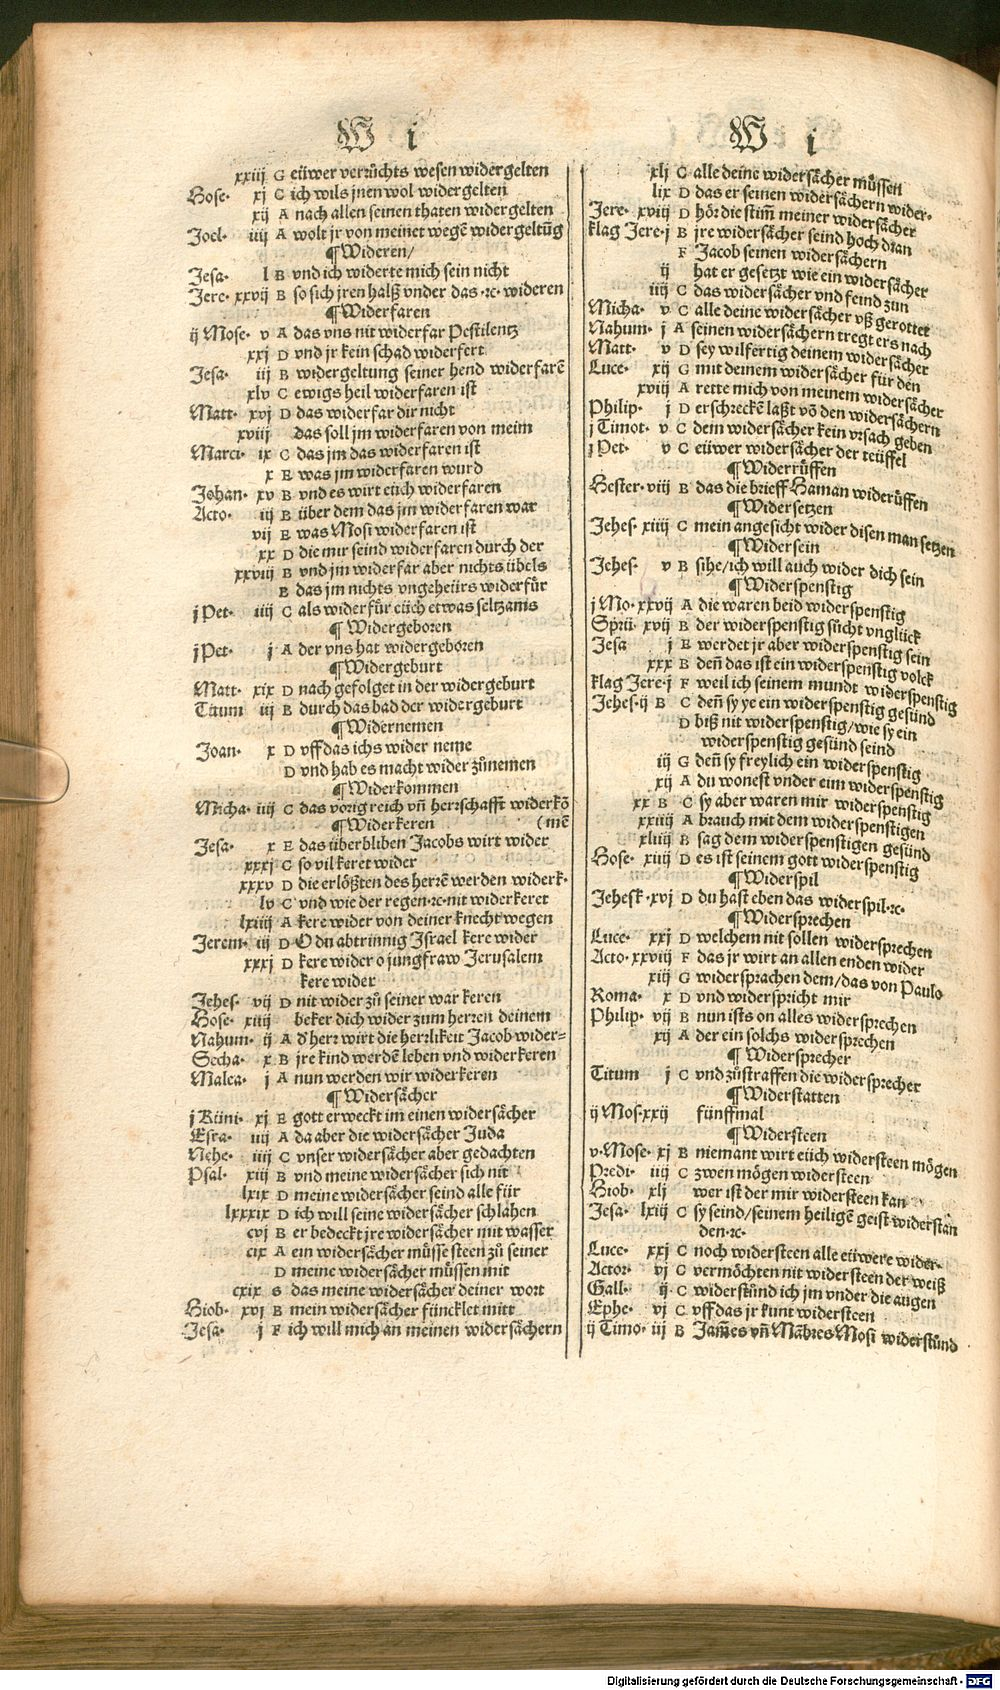 W i
xxiij G eüwer verrůchts wesen widergelten
Hose. xj C ich wils jnen wol widergelten
xij A nach allen seinen thaten widergelten
Joel. iiij A wolt jr von meinet wegē widergeltūg
¶Wideren/
Jesa. l B vnd ich widerte mich sein nicht
Jere. xxvij B so sich jren halß vnder das ·ꝛc· wideren
¶Widerfaren
ij Mose. v A das vns nit widerfar Pestilentz
xxj D vnd jr kein schad widerfert
Jesa. iij B widergeltung seiner hend widerfarē
xlv C ewigs heil widerfaren ist
Matt. xvj D das widerfar dir nicht
xviij das soll jm widerfaren von meim
Marci. ix C das jm das widerfaren ist
x E was jm widerfaren wurd
Johan. xv B vnd es wirt eüch widerfaren
Acto. iij B über dem das jm widerfaren war
vij E was Mosi widerfaren ist
xx D die mir seind widerfaren durch der
xxviij B vnd jm widerfar aber nichts übels
B das jm nichts vngeheürs widerfür
j Pet. iiij C als widerfür eüch etwas seltzams
¶Widergeboren
j Pet. j A der vns hat widergeboren
¶Widergeburt
Matt. xix D nach gefolget in der widergeburt
Titum iij B durch das bad der widergeburt
¶Widernemen
Joan. x D vff das ichs wider neme
D vnd hab es macht wider zůnemen
¶Widerkommen
Micha. iiij C das vorig reich vn̄ herrschafft widerkō
¶Widerkeren (mē
Jesa. x E das überbliben Jacobs wirt wider
xxxj C so vil keret wider
xxxv D die erlößten des herrē werden widerk.
lv C vnd wie der regen·ꝛc·nit widerkeret
lxiiij A kere wider von deiner knecht wegen
Jerem. iij D O du abtrinnig Israel kere wider
xxxj D kere wider o jungfraw Jerusalem
kere wider
Jehes. vij D nit wider zů seiner war keren
Hose. xiiij beker dich wider zum herren deinem
Nahum. ij A d'herr wirt die herrlikeit Jacob wider=
Secha. x B jre kind werdē leben vnd widerkeren
Malea. j A nun werden wir widerkeren
¶Widersächer
j Küni. xj E gott erweckt im einen widersächer
Esra. iiij A da aber die widersächer Juda
Nehe. iiij C vnser widersächer aber gedachten
Psal. xiij B vnd meine widersächer sich nit
lxix D meine widersächer seind alle für
lxxxix D ich will seine widersächer schlahen
cvj B er bedeckt jre widersächer mit wasser
cix A ein widersächer müsse steen zů seiner
D meine widersächer müssen mit
cxix S das meine widersächer deiner wort
Hiob. xvj B mein widersächer füncklet mitt
Jesa. j F ich will mich an meinen widersächern
W i
xlj C alle deine widersächer müssen
lix D das er seinen widersächern wider.
Jere. xviij D hör die stim̄ meiner widersächer
klag Jere.j B jre widersächer seind hoch dran
F Jacob seinen widersächern
ij hat er gesetzt wie ein widersächer
iiij C das widersächer vnd feind zun
Micha. v C alle deine widersächer vß gerottet
Nahum. j A seinen widersächern tregt ers nach
Matt. v D sey wilfertig deinem widersächer
Luce. xij G mit deinem widersächer für den
xviij A rette mich von meinem widersächer
Philip. j D erschreckē laßt vō den widersächern
j Timot. v C dem widersächer kein vrsach geben
j Pet. v C eüwer widersächer der teüffel
¶Widerrüffen
Hester. viij B das die brieff Haman widerüffen
¶Widersetzen
Jehes. xiiij C mein angesicht wider disen man setzen
¶Widersein
Jehes. v B sihe/ich will auch wider dich sein
¶Widerspenstig
j Mo. xxvij A die waren beid widerspenstig
Sprü. xvij B der widerspenstig sücht vnglück
Jesa j E werdet jr aber widerspenstig sein
xxx B den̄ das ist ein widerspenstig volck
klag Jere.j F weil ich seinem mundt widerspenstig
Jehes.ij B C den̄ sy ye ein widerspenstig gesünd
D biß nit widerspenstig/wie sy ein
widerspenstig gesünd seind
iij G den̄ sy freylich ein widerspenstig
xij A du wonest vnder eim widerspenstig
xx B C sy aber waren mir widerspenstig
xxiiij A brauch mit dem widerspenstigen
xliiij B sag dem widerspenstigen gesünd
Hose. xiiij D es ist seinem gott widerspenstig
¶Widerspil
Jehesk .xvj D du hast eben das widerspil·ꝛc·
¶Widersprechen
Luce. xxj D welchem nit sollen widersprechen
Acto. xxviij F das jr wirt an allen enden wider
xiij G widersprachen dem/das von Paulo
Roma. x D vnd widerspricht mir
Philip. vij B nun ists on alles widersprechen
xij A der ein solchs widersprechen
¶Widersprecher
Titum j C vnd zůstraffen die widersprecher
¶Widerstatten
ij Mos.xxij fünffmal
¶Widersteen
v. Mose. xj B niemant wirt eüch widersteen mögen
Predi. iiij C zwen mögen widersteen
Hiob. xlj wer ist der mir widersteen kan
Jesa. lxiij C sy seind/seinem heiligē geist widerstan
den·ꝛc·
Luce. xxj C noch widersteen alle eüwere wider.
Actor. vj C vermöchten nit widersteen der weiß
Gall. ij C widerstünd ich jm vnder die augen
Ephe. vj C vff das jr kunt widersteen
ij Timo. iij B Jam̄es vn̄ Mābres Mosi widerstünd
Digitalisierung gefördert durch die Deutsche Forschungsgemeinschaft - DFG